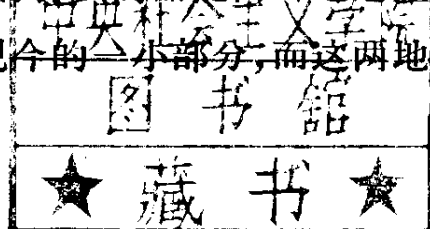 中央社会主义学院
今的一小部分，而这两地
图书馆
★藏书★